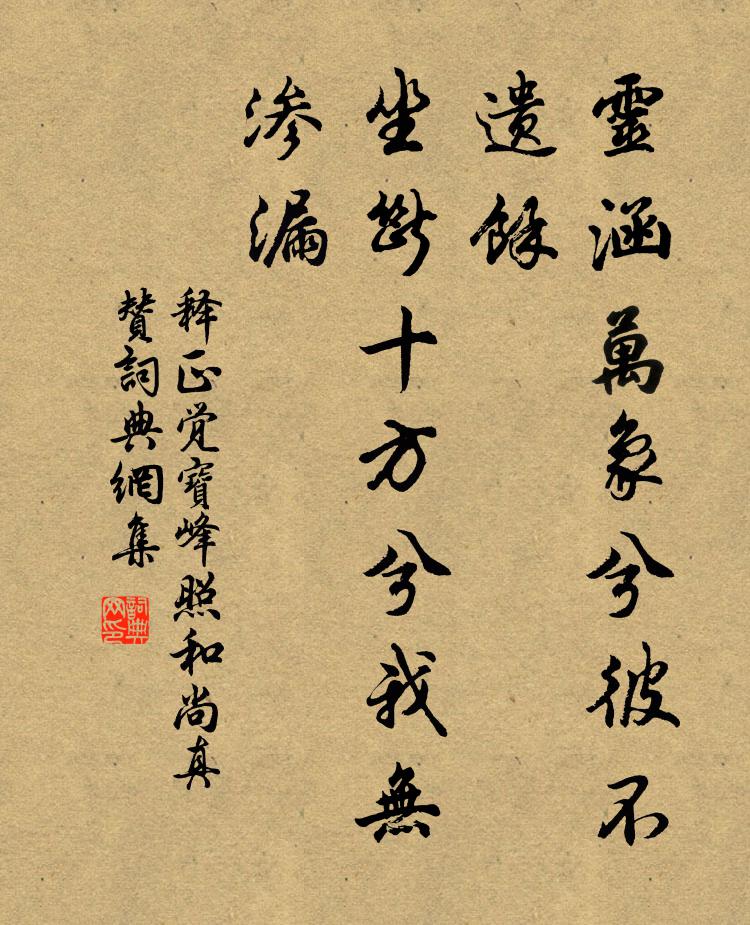 靈涵萬象兮彼不
遺餘
坐斷十方兮我無
渗漏
释正觉寶峰照和尚真
贊詞典網集
詞典
网印